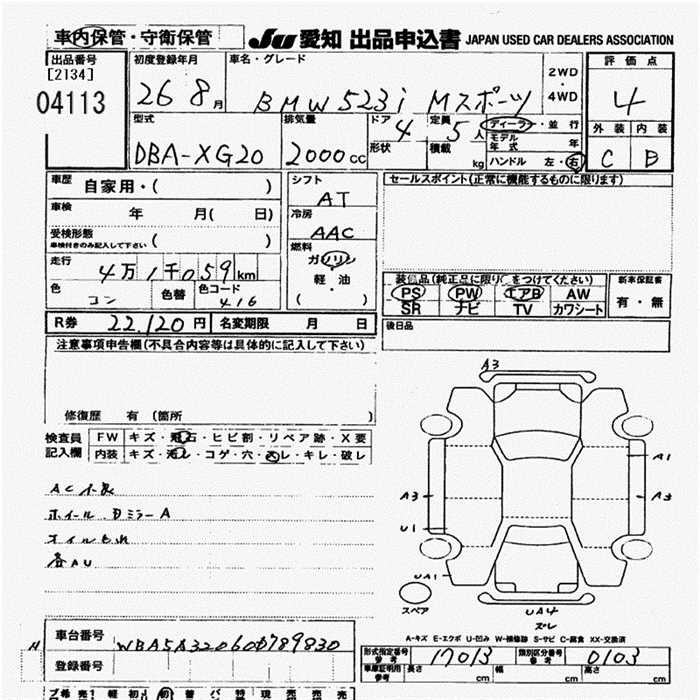 車内保管・守衛保管 JU 愛知 出品申込書 JAPAN USED CAR DEALERS ASSOCIATION
出品番号 初度登録年月 車名・グレード 評価点
[2134]
04113 26 8月 BMW 523i Mスポーツ 2WD・4WD 4
型式 排気量 ドア 4 定員 5人 ディーラー・並行 外装 内装
形状 積載 kg モデル年式
DBA-XG20 2000cc ハンドル 左・右 C B
車歴 自家用・( ) シフト AT セールスポイント(正常に機能するものに限ります)
車検 年 月( 日) 冷房 AAC
受検形態 ( )
車検付きのみ記入して下さい
燃料 ガソリン
軽・油
( )
走行 4万1千059km
色 コン 色替 色コード 416
装備品(純正品に限り○をつけてください) 新車保証書
PS PW エアB AW 有・無
SR ナビ TV カワシート
R券 22,120円 名変期限 月 日 後日品
注意事項申告欄(不具合内容等は具体的に記入して下さい)
修復歴 有 (箇所 )
検査員 FW キズ・飛石・ヒビ割・リペア跡・X要
記入欄 内装 キズ・汚レ・コゲ・穴・スレ・キレ・破レ
AC不良
ホイール、ドミラーA
オイルもれ
各AU
A3
A1
A3 A3
U1
UA1
スペア
UA4
ズレ
A-キズ E-エクボ U-凹み W-補修跡 S-サビ C-腐食 XX-交換済
車台番号 WBA5A32060D789830
登録番号
形式指定番号 参考 17013 類別区分番号 参考 0103
車庫証明用 参考 長さ cm 幅 cm 高さ cm